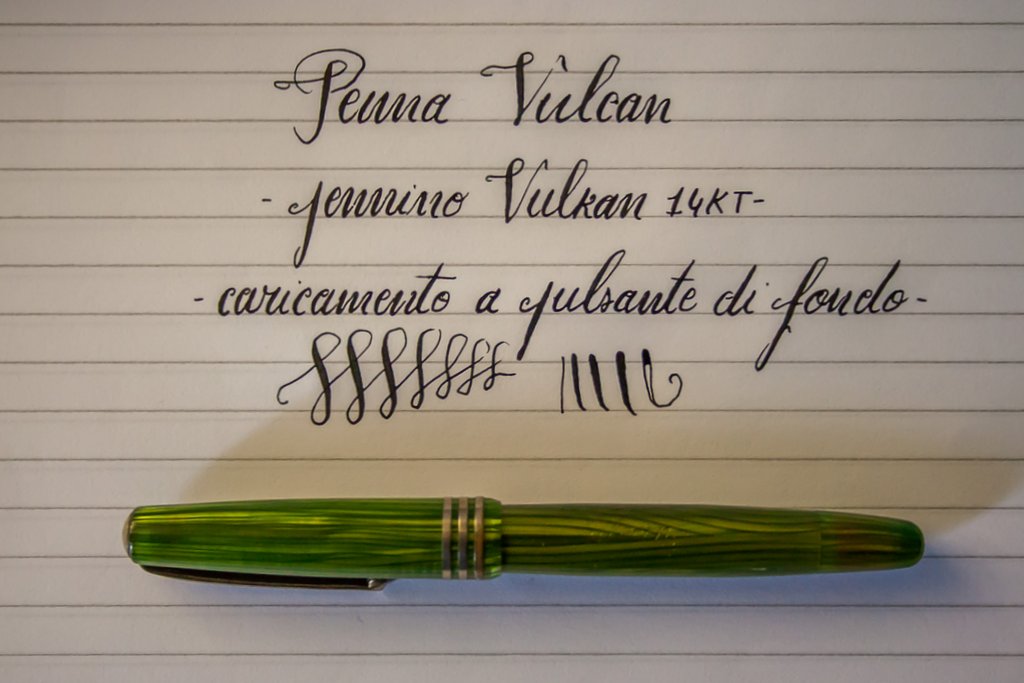 Penna Vulcan
- pennino Vulkan 14KT-
- caricamento a pulsante di fondo-